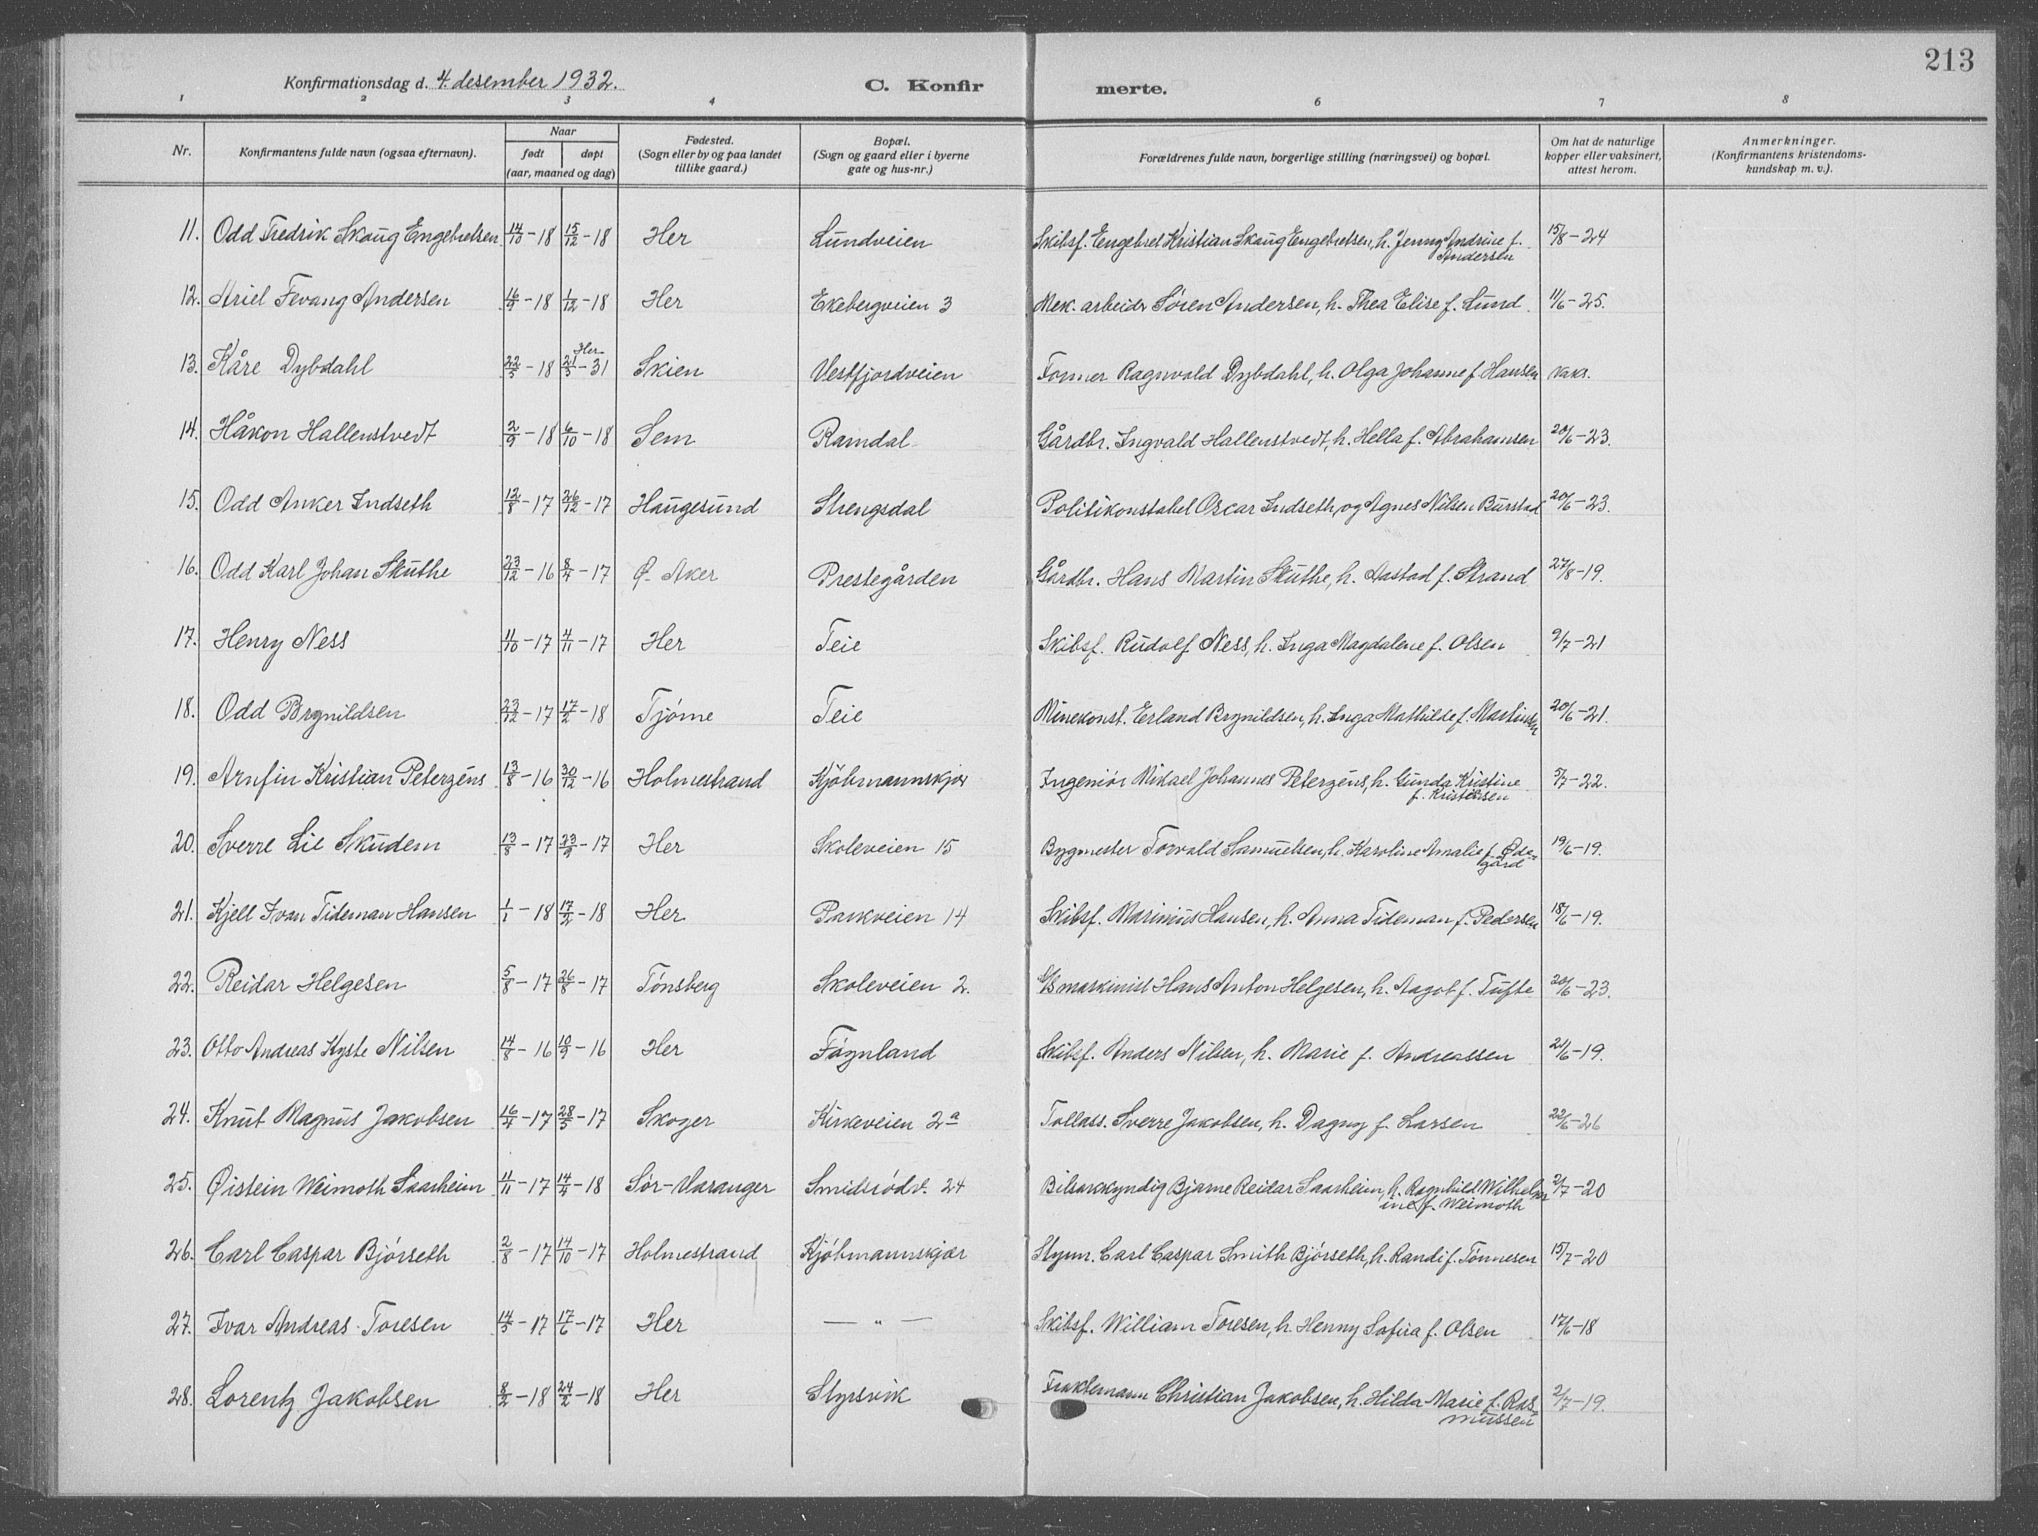 213
Konfirmationsdag d. 4. desember 1932. C. Konfir merte.
1 2 3 4 6 7 8
Nr. Konfirmantens fulde navn (ogsaa efternavn). Naar født døpt (aar, maaned og dag) Fødested. (Sogn eller by og paa landet tillike gaard.) Bopæl. (Sogn og gaard eller i byerne gate og hus-nr.) Forældrenes fulde navn, borgerlige stilling (næringsvei) og bopæl. Om hat de naturlige kopper eller vaksinert, attest herom. Anmerkninger. (Konfirmantens kristendoms-kundskap m. v.).
11. Odd Fredrik Skaug Engebretsen 14/10-18 15/12-18 Her Lundveien Skibsf. Engebret Kristian Skaug Engebretsen, h. Jenny Andrine f. Andersen 15/8-24
12. Ariel Fevang Andersen 16/9-18 1/12-18 Her Ekebergveien 3 Mek. arbeider Søren Andersen, h. Thea Elise f. Lund 11/6-25.
13. Kåre Dybdahl 22/5-18 Her 21/5-31 Skien Vestfjordveien Former Ragnvald Dybdahl, h. Olga Johanne f. Hansen vaks.
14. Håkon Hallenstvedt 2/9-18 6/10-18 Sem Ramdal Gårdbr. Ingvald Hallenstvedt, h. Hella f. Abrahamsen 20/6-23.
15. Odd Anker Indseth 12/8-17 26/12-17 Haugesund Strengsdal Politikonstabel Oscar Indseth, og Agnes Nilsen Burstad 20/6-23.
16. Odd Karl Johan Skuthe 23/12-16 8/4-17 Ø. Aker Prestegården Gårdbr. Hans Martin Skuthe, h. Aastad f. Strand 27/8-19.
17. Henry Ness 11/10-17 4/11-17 Her Teie Skibsf. Rudolf Ness, h. Inga Magdalene f. Olsen 9/7-21
18. Odd Brynildsen 23/12-17 17/2-18 Tjøme Teie Minekonst. Erland Brynildsen, h. Inga Mathilde f. Martinsen 20/6-21.
19. Arnfin Kristian Peterzéns 13/8-16 30/12-16 Holmestrand Kjøbmannskjær Ingeniør Mikael Johannes Peterzéns, h. Gunda Kristine f. Kristensen 5/7-22.
20. Sverre Lie Skudem 13/8-17 23/9-17 Her Skoleveien 15 Bygmester Torvald Samuelsen, h. Karoline Amalie f. Øde-gård 19/6-19.
21. Kjell Ivan Tideman Hansen 1/1-18 17/2-18 Her Parkveien 14 Skibsf. Marinius Hansen, h. Anna Tideman f. Pedersen 18/6-19.
22. Reidar Helgesen 5/8-17 26/8-17 Tønsberg Skoleveien 2. G/S maskinist Hans Anton Helgesen, h. Aagot f. Tufte 20/6-23.
23. Otto Andreas Kyste Nilsen 14/8-16 10/9-16 Her Føynland Skibsf. Anders Nilsen, h. Marie f. Andreassen 21/6-19.
24. Knut Magnus Jakobsen 16/4-17 28/5-17 Skoger Kirkeveien 2a Tollass. Sverre Jakobsen, h. Dagny f. Larsen 22/6-26
25. Øistein Weimoth Saarheim 4/11-17 14/4-18 Sør-Varanger Smidsrødv. 24 Bilsakkyndig Bjarne Reidar Saarheim, h. Ragnhild Wilhelm ine f. Weimoth 2/7-20
26. Carl Caspar Bjørseth 2/8-17 14/10-17 Holmestrand Kjøbmannskjær Styrm. Carl Caspar Smith Bjørseth, h. Randi f. Tønnesen 15/7-20
27. Ivar Andreas Toresen 14/5-17 17/6-17 Her — " — Skibsf. William Toresen, h. Henny Sofira f. Olsen 17/6-18
28. Lorentz Jakobsen 8/2-18 24/2-18 Her Styrsvik Fraktemann Christian Jakobsen, h. Hilda Marie f. Ras-mussen 2/7-19.